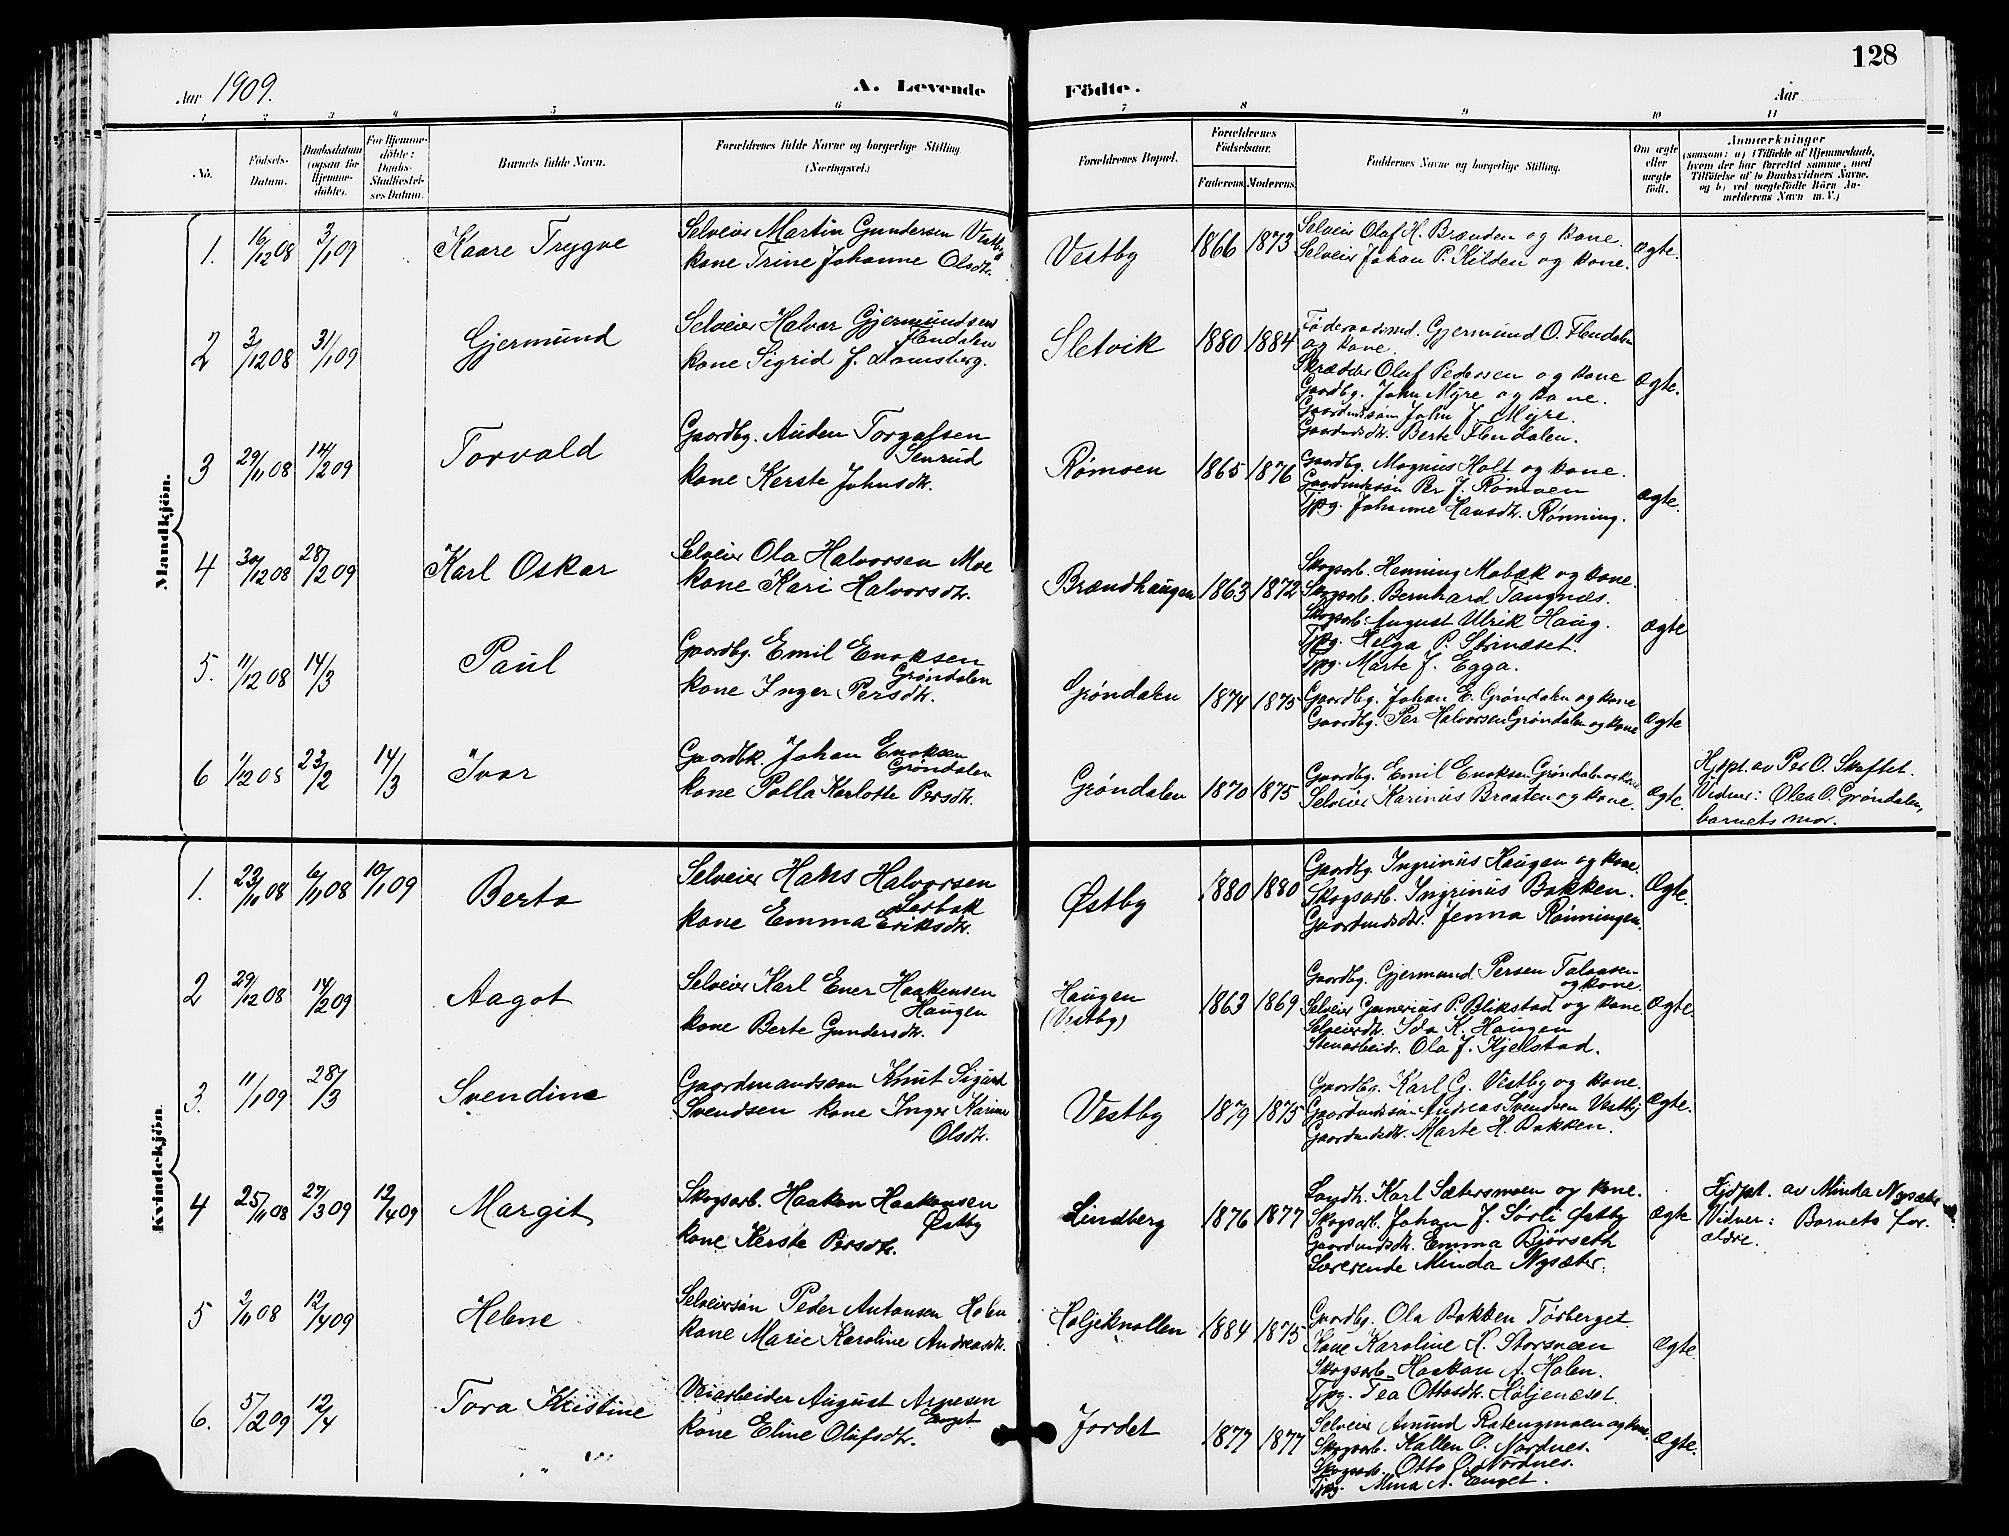 128
Aar 1909.
A. Levende Födte.
Aar
1 2 3 4 5 6 7 8 9 10 11
No.
Födsels-Datum.
Daabsdatum (ogsaa for Hjemme-döbte).
For Hjemme-döbte: Daabs-Stadfæstel-ses Datum.
Barnets fulde Navn.
Forældrenes fulde Navne og borgerlige Stilling (Næringsvei.)
Forældrenes Bopæl.
Forældrenes Födselsaar.
Faderens. Moderens.
Faddernes Navne og borgerlige Stilling.
Om ægte eller uægte födt.
Anmærkninger
(saasom: a) i Tilfælde af Hjemmedaab, hvem der har forrettet samme, med Tilföielse af to Daabsvidners Navne. og b) ved uægtefödte Börn An-melderens Navn m. V.)
Mandkjön.
1. 16/12 08 3/1 09 Kaare Trygve
Selveier Martin Gundersen Vestby
kone Trine Johanne Olsdtr.
Vestby 1866 1873
Selveier Olaf H. Brænden og kone.
Selveier Johan P. Kilden og kone.
ægte.
2 3/12 08 31/1 09 Gjermund
Selveier Halvor Gjermundsen
Flendalen
kone Sigrid J.
Sletvik 1880 1884
Føderaadsmd. Gjermund O. Flendalen
og kone.
Skrædder Olaf Pedersen og kone
Gaardbg. John Myre og kone.
Gaardmdssøn John J. Myre.
Gaardmdsdtr. Berte Flendalen.
ægte.
3 29/11 08 14/2 09 Torvald
Gaardbg. Auden Torgalsen
Senrud
kone Kerste Johnsdtr.
Rømoen 1865 1876
Gaardbg. Magnus Holt og kone.
Gaardmdssøn Per J. Rømoen
Tjpg. Johanne Hansdtr. Rønning.
ægte.
4 30/12 08 28/2 09 Karl Oskar
Selveier Ola Halvorsen Moe
kone Kari Halvorsdtr.
Brændhaugen 1863 1872
Skogsarb. Henning Mobæk og kone.
Skogsarb. Bernhard Tangnæs.
Skogsarb. August Ulrik Haug.
Tjpg. Helga P. Strinæset.
Tjpg. Marte J. Egga.
ægte
5. 11/12 08 14/3 Paul
Gaardbg. Emil Enoksen
Grøndalen
kone Inger Persdtr.
Grøndalen 1874 1875
Gaardbg. Johan E. Grøndalen og kone
Gaardbg. Per Halvorsen Grøndalen og kone
ægte
6 1/12 08 23/2 14/3 Ivar
Gaardbk. Johan Enoksen
Grøndalen
kone Polla Karlotte Persdtr.
Grøndalen 1870 1875
Gaardbg. Emil Enoksen Grøndalen og kone
Selveier Karinus Braaten og kone.
ægte.
Hjdpt. av Per O. Skaftet.
Vidner: Olea O. Grøndalen,
barnets mor.
Kvindekjön.
1. 23/11 08 6/11 08 10/1 09 Berta
Selveier Hans Halvorsen
Lerbak
kone Emma Eriksdtr.
Østby 1880 1880
Gaardbg. Ingrinus Haugen og kone.
Skogsarb. Ingrinus Bakken.
Gaardmdsdtr. Jenna Rønningen.
Ægte.
2 29/12 08 14/2 09 Aagot
Selveier Karl Ener Haakensen
Haugen
kone Berte Gundersdtr.
Haugen
(Vestby) 1863 1869
Gaardbg. Gjermund Persen Talaasen
og kone.
Selveier Gunerius P. Blikstad og kone
Selveierdtr. Ida K. Haugen
Stenarbeidr. Ola J. Kjelstad.
Ægte.
3. 11/1 09 28/3 Svendine
Gaardmandssøn Knut Sigurd
Svendsen kone Inger Karine
Olsdtr.
Vestby 1879 1875
Gaardbg. Karl G. Vestby og kone.
Gaardmdssøn Andreas Svendsen Vestby
Gaardmdsdtr. Marte H. Bakken.
Ægte.
4 25/11 08 27/3 09 12/4 09 Margit
Skogsarb. Haakon Haakonsen
Østby
kone Kerste Persdtr.
Lindberg 1876 1877
Landh. Karl Sætersmoen og kone.
Skogsarb. Johan J. Sørli Østby
Gaardmdsdtr. Emma Bjørseth
Lærerinde Minda Nysæter.
ægte
Hjdpt. av Minda Nysæter
Vidner: Barnets for-
ældre.
5 2/11 08 12/4 09 Helene
Selveiersøn Peder Antonsen Holen
kone Marie Karoline Andreasdtr.
Høljeknollen 1884 1875
Gaardbg. Ola Bakken Tørberget.
Kone Karoline H. Storsveen
Skogsarb. Haakon A. Holen.
Tjpg. Tea Ottosdtr. Høljenæset.
Ægte
6. 5/2 09 12/4 Tora Kristine
Veiarbeider August Arnesen
Enget
kone Eline Olafsdtr.
Jordet 1877 1877
Selveier Amund Ratengmoen og kone.
Skogsarb. Kallen O. Nordnes.
Skogsarb. Otto O. Nordnes.
Tjpg. Mina A. Enget.
Ægte.